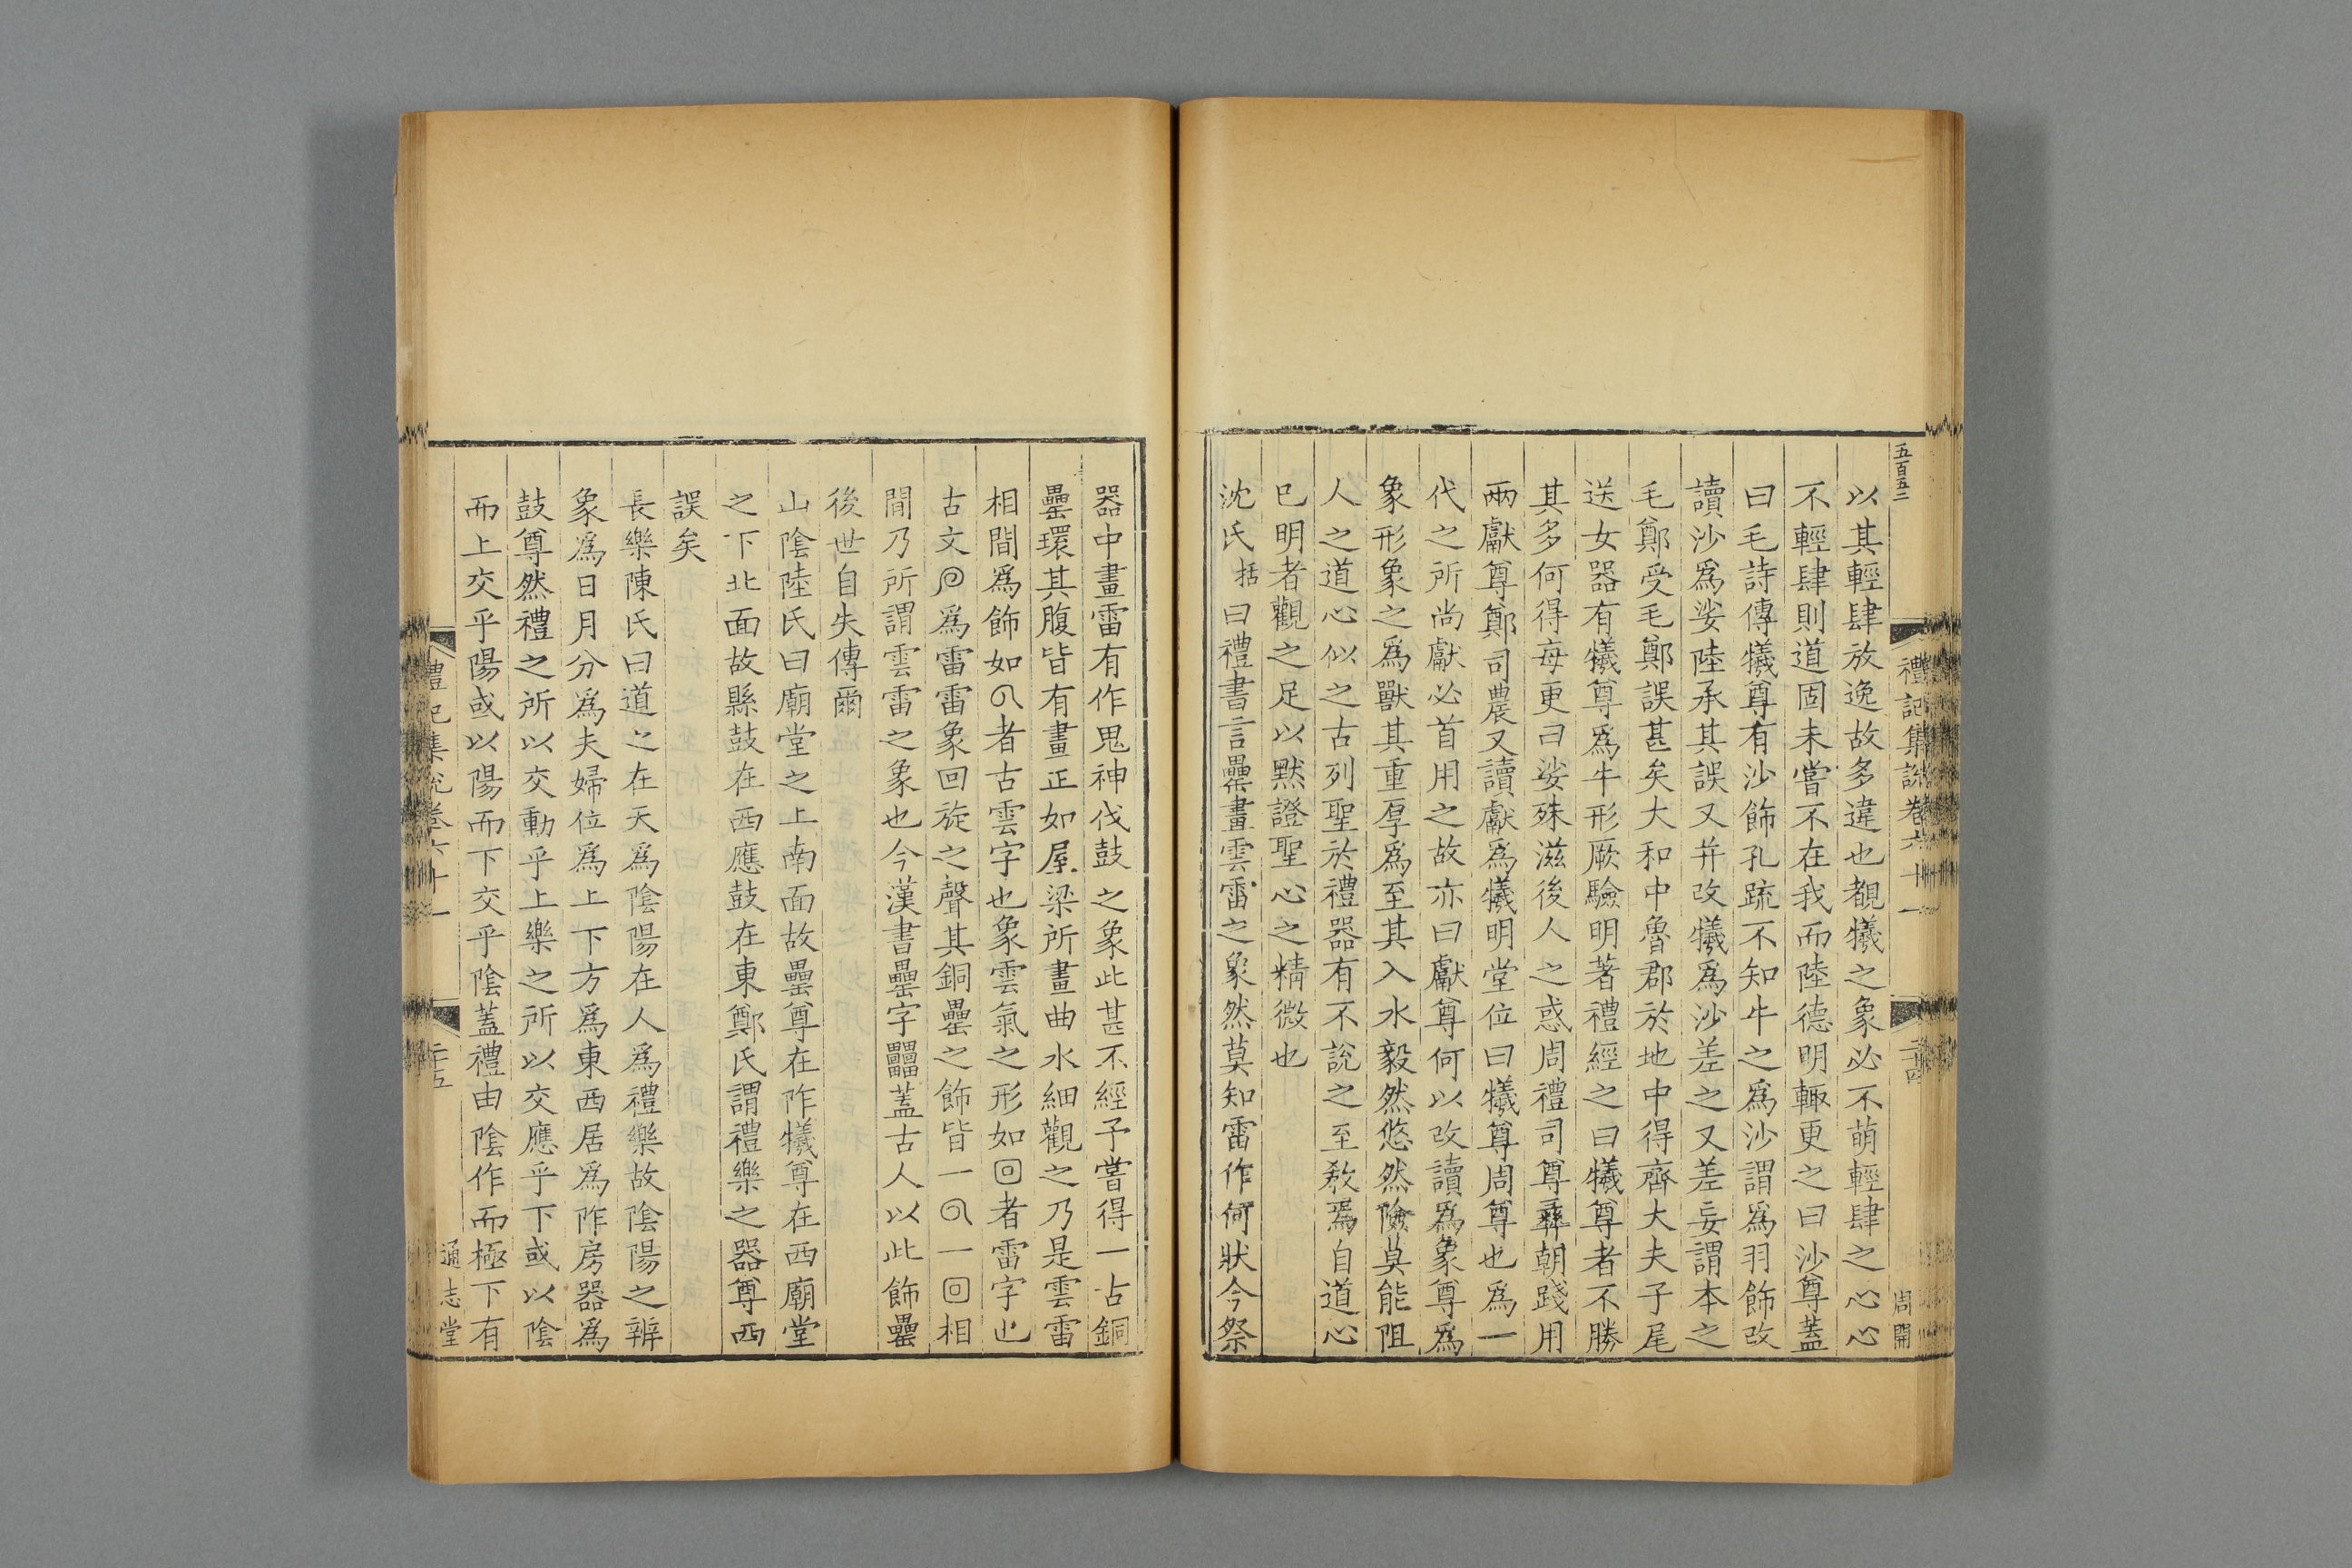 五百五二
禮記集說卷六十一
二十四
周開
以其輕肆放逸故多違也覩犧之象必不萌輕肆之心心
不輕肆則道固未嘗不在我而陸德明輒更之曰沙尊蓋
曰毛詩傳犧尊有沙飾孔疏不知牛之爲沙謂爲羽飾改
讀沙爲娑陸承其誤又并改犧爲沙差之又差妄謂本之
毛鄭受毛鄭誤甚矣大和中魯郡於地中得齊大夫子尾
送女器有犧尊爲牛形厥驗明著禮經之曰犧尊者不勝
其多何得每更曰娑殊滋後人之惑周禮司尊彝朝踐用
兩獻尊鄭司農又讀獻爲犧明堂位曰犧尊周尊也爲一
代之所尚獻必首用之故亦曰獻尊何以改讀爲象尊爲
象形象之爲獸其重厚爲至其入水毅然悠然險莫能阻
人之道心似之古列聖於禮器有不說之至教焉自道心
已明者觀之足以默證聖心之精微也
沈氏括曰禮書言罍畫雲雷之象然莫知雷作何狀今祭
器中畫雷有作鬼神伐鼓之象此甚不經予嘗得一古銅
罍環其腹皆有畫正如屋梁所畫曲水細觀之乃是雲雷
相間爲飾如者古雲字也象雲氣之形如回者雷字也
古文爲雷雷象回旋之聲其銅罍之飾皆一一回相
間乃所謂雲雷之象也今漢書罍字䨻蓋古人以此飾罍
後世自失傳爾
山陰陸氏曰廟堂之上南面故罍尊在阼犧尊在西廟堂
之下北面故縣鼓在西應鼓在東鄭氏謂禮樂之器尊西
誤矣
長樂陳氏曰道之在天爲陰陽在人爲禮樂故陰陽之辨
象爲日月分爲夫婦位爲上下方爲東西居爲阼房器爲
鼓尊然禮之所以交動乎上樂之所以交應乎下或以陰
而上交乎陽或以陽而下交乎陰蓋禮由陰作而極下有
禮記集說卷六十一
二十五
通志堂